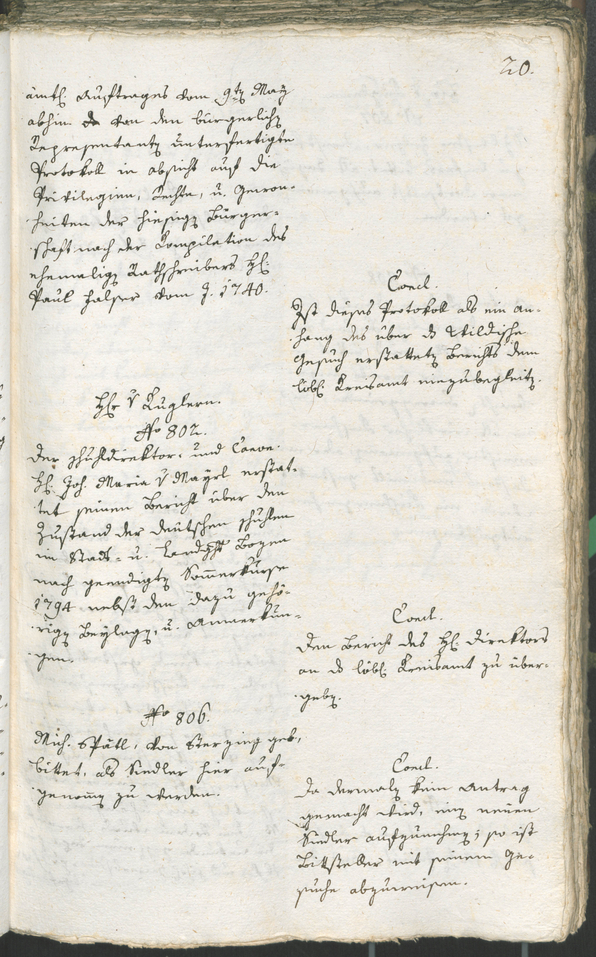 20.
ämtl. Auftrages vom 9ten May
abhin von den bürgerlichen
Repræsentanten unterfertigte
Protokoll in absicht auf die
Privilegien, Rechte, u. Gewon-
heiten der hiesigen Bürger-
schaft nach der Compilation des
ehemaligen Rathschreibers H:
Paul Halser vom J. 1740.
Concl.
Ist dieses Protokoll als ein an-
hang des über die Wildische
Gesuch erstatteten Berichts dem
löbl. Kreisamt einzubegleiten.
Hr v Kuglern.
No 802.
Der Schuldirektor, und Canon.
H: Joh. Maria v Mayrl erstat-
tet seinen Bericht über den
Zustand der deutschen Schulen
im Stadt- u. Landgericht Bozen
nach geendigten Sommerkurse
1794 nebst den dazu gehö-
rigen Beylagen, u. Anmerkun-
gen.
Concl.
Den Bericht des H: Direktors
an das löbl. Kreisamt zu über-
geben.
No 806.
Mich. Spätl, von Sterzing geb.,
bittet, als Siedler hier auf-
genomen zu werden.
Concl.
Da dermalen kein Antrag
gemacht wird, einen neuen
Siedler aufzunehmen; so ist
Bittsteller mit seinem Ge-
suche abzuweisen.